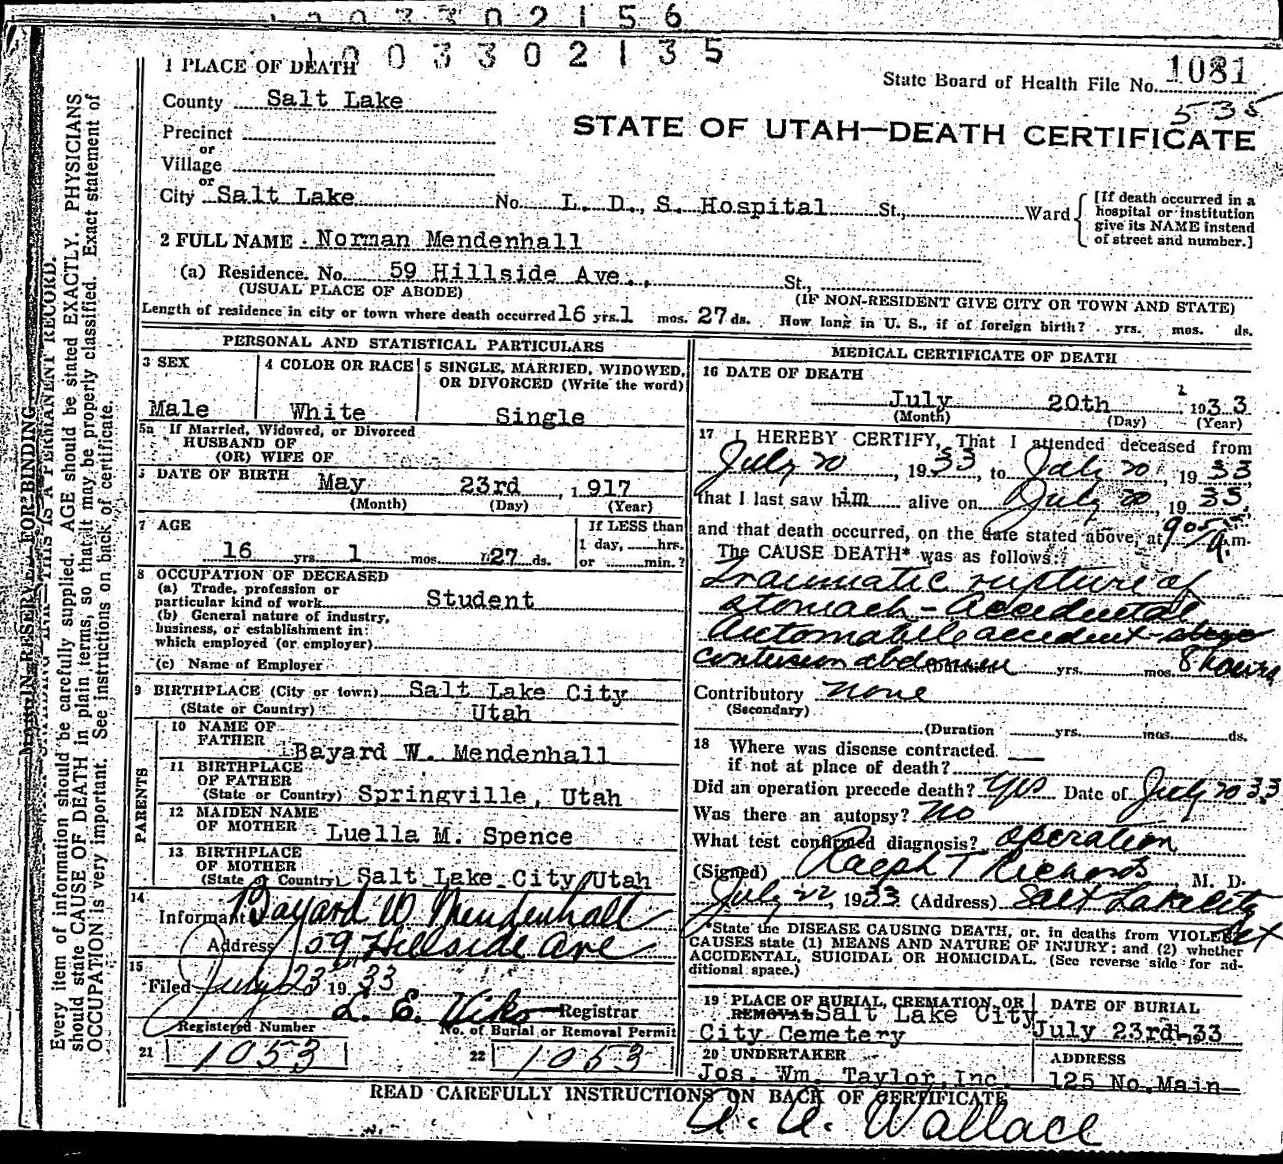 1003302156
1003302135
1 PLACE OF DEATH
State Board of Health File No. 1081
535
County Salt Lake
STATE OF UTAH—DEATH CERTIFICATE
Precinct
or
Village
or
City Salt Lake No. L. D. S. Hospital St., Ward
[If death occurred in a
hospital or institution
give its NAME instead
of street and number.]
2 FULL NAME Norman Mendenhall
(a) Residence. No. 59 Hillside Ave., St.,
(USUAL PLACE OF ABODE) (IF NON-RESIDENT GIVE CITY OR TOWN AND STATE)
Length of residence in city or town where death occurred 16 yrs. 1 mos. 27 ds. How long in U. S., if of foreign birth? yrs. mos. ds.
PERSONAL AND STATISTICAL PARTICULARS
3 SEX 4 COLOR OR RACE 5 SINGLE, MARRIED, WIDOWED,
OR DIVORCED (Write the word)
Male White Single
5a If Married, Widowed, or Divorced
HUSBAND OF
(OR) WIFE OF
DATE OF BIRTH May 23rd, 1917
(Month) (Day) (Year)
7 AGE If LESS than
1 day, hrs.
16 yrs. 1 mos. 27 ds. or min.?
8 OCCUPATION OF DECEASED
(a) Trade, profession or
particular kind of work Student
(b) General nature of industry,
business, or establishment in
which employed (or employer)
(c) Name of Employer
9 BIRTHPLACE (City or town) Salt Lake City
(State or Country) Utah
PARENTS
10 NAME OF
FATHER Bayard W. Mendenhall
11 BIRTHPLACE
OF FATHER
(State or Country) Springville, Utah
12 MAIDEN NAME
OF MOTHER Luella M. Spence
13 BIRTHPLACE
OF MOTHER
(State or Country) Salt Lake City, Utah
14
Informant Bayard W Mendenhall
Address 59 Hillside Ave
15
Filed July 23 1933
L. E. Viko Registrar
Registered Number No. of Burial or Removal Permit
21 1053 22 1053
MEDICAL CERTIFICATE OF DEATH
16 DATE OF DEATH
July 20th, 1933
(Month) (Day) (Year)
17 I HEREBY CERTIFY, That I attended deceased from
July 20, 1933, to July 20, 1933
that I last saw him alive on July 20, 1933,
and that death occurred, on the date stated above, at 905 m.
The CAUSE DEATH* was as follows:
Traumatic rupture of
stomach - Accidental
Automobile accident
contusion abdomen (Duration yrs. mos. 8 hours
Contributory none
(Secondary)
(Duration yrs. mos. ds.
18 Where was disease contracted
if not at place of death? —
Did an operation precede death? Yes Date of July 20 33
Was there an autopsy? No
What test confirmed diagnosis? operation
(Signed) Ralph T Richards M. D.
July 22, 1933 (Address) Salt Lake City
*State the DISEASE CAUSING DEATH, or, in deaths from VIOLENT
CAUSES state (1) MEANS AND NATURE OF INJURY; and (2) whether
ACCIDENTAL, SUICIDAL OR HOMICIDAL. (See reverse side for ad-
ditional space.)
19 PLACE OF BURIAL, CREMATION, OR DATE OF BURIAL
REMOVAL Salt Lake City
City Cemetery July 23rd-33
20 UNDERTAKER ADDRESS
Jos. Wm. Taylor, Inc. 125 No. Main
READ CAREFULLY INSTRUCTIONS ON BACK OF CERTIFICATE
A. A. Wallace
MARGIN RESERVED FOR BINDING
THIS IS A PERMANENT RECORD.
Every item of information should be carefully supplied. AGE should be stated EXACTLY. PHYSICIANS
should state CAUSE OF DEATH in plain terms, so that it may be properly classified. Exact statement of
OCCUPATION is very important. See instructions on back of certificate.